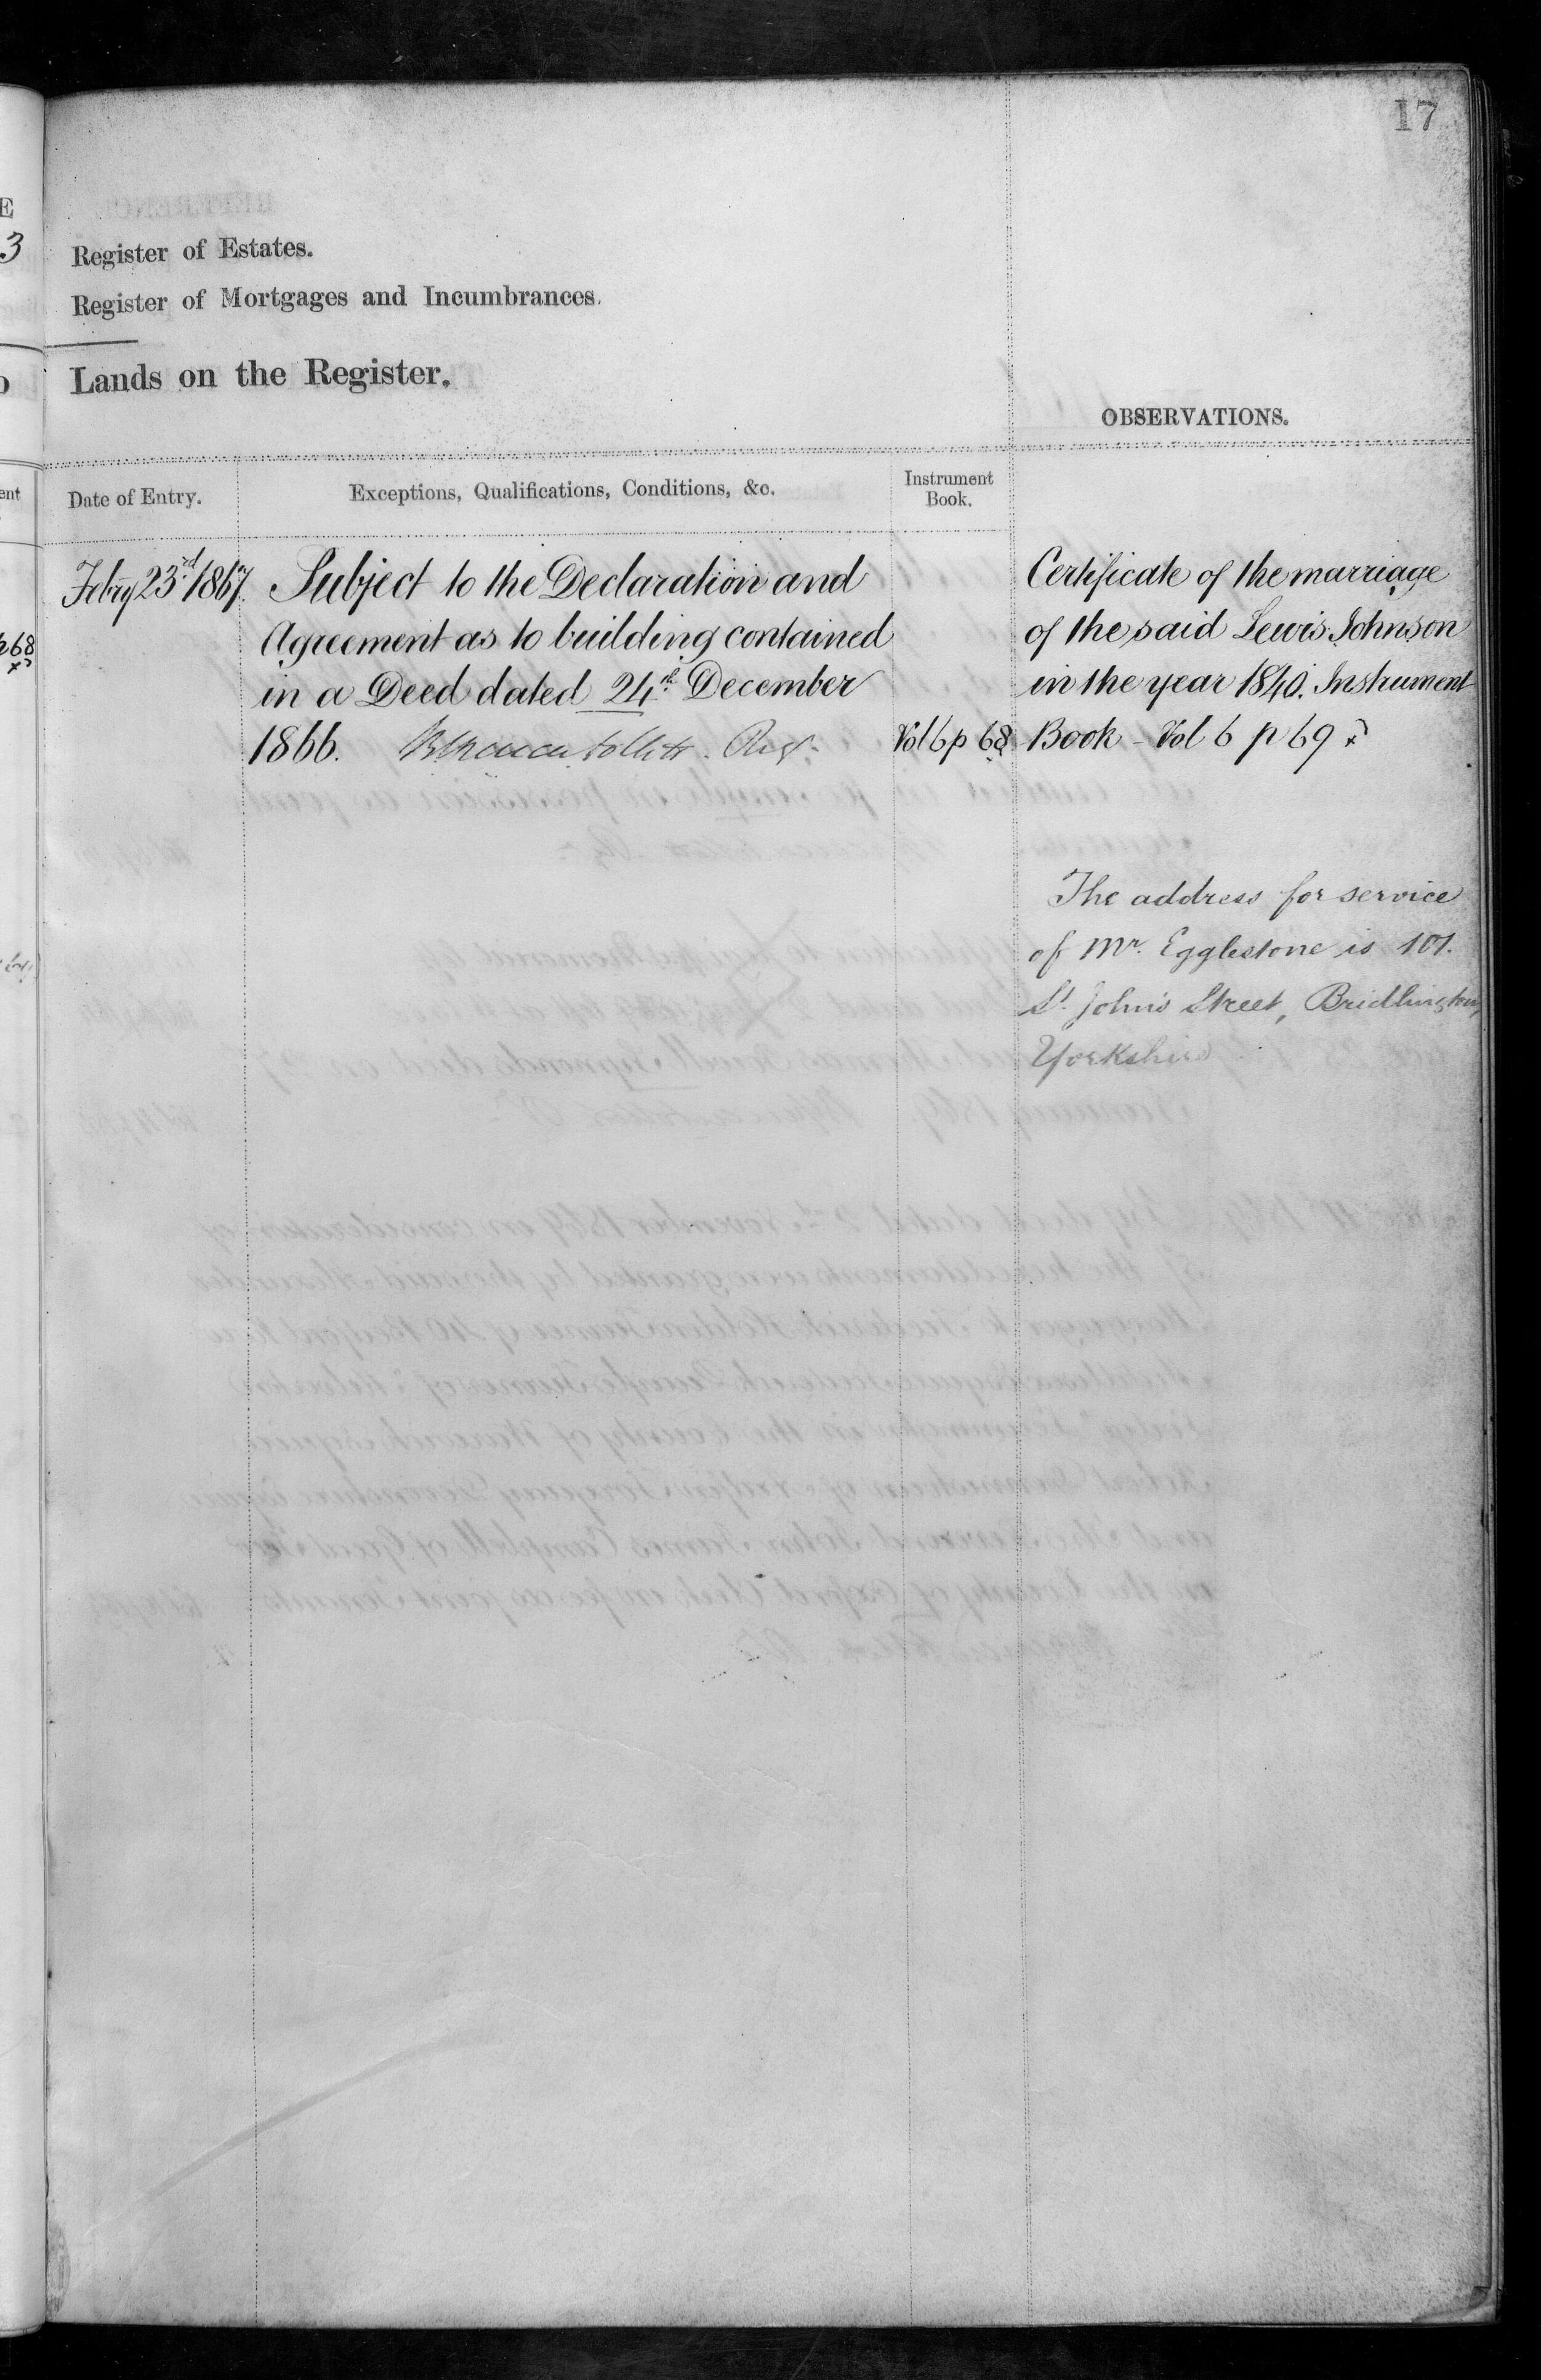 17
Register of Estates.
Register of Mortgages and Incumbrances.
Lands on the Register.
OBSERVATIONS.
Date of Entry.
Exceptions, Qualifications, Conditions, &c.
Instrument
Book.
Febry 23rd 1867.
Subject to the Declaration and
Agreement as to building contained
in a Deed dated 24th December
1866. Regr.
Vol 6 p 68
Certificate of the marriage
of the said Lewis Johnson
in the year 1840. Instrument
Book - Vol 6 p 69
The address for service
of Mr. Egglestone is 101.
St. John's Street, Bridlington,
Yorkshire